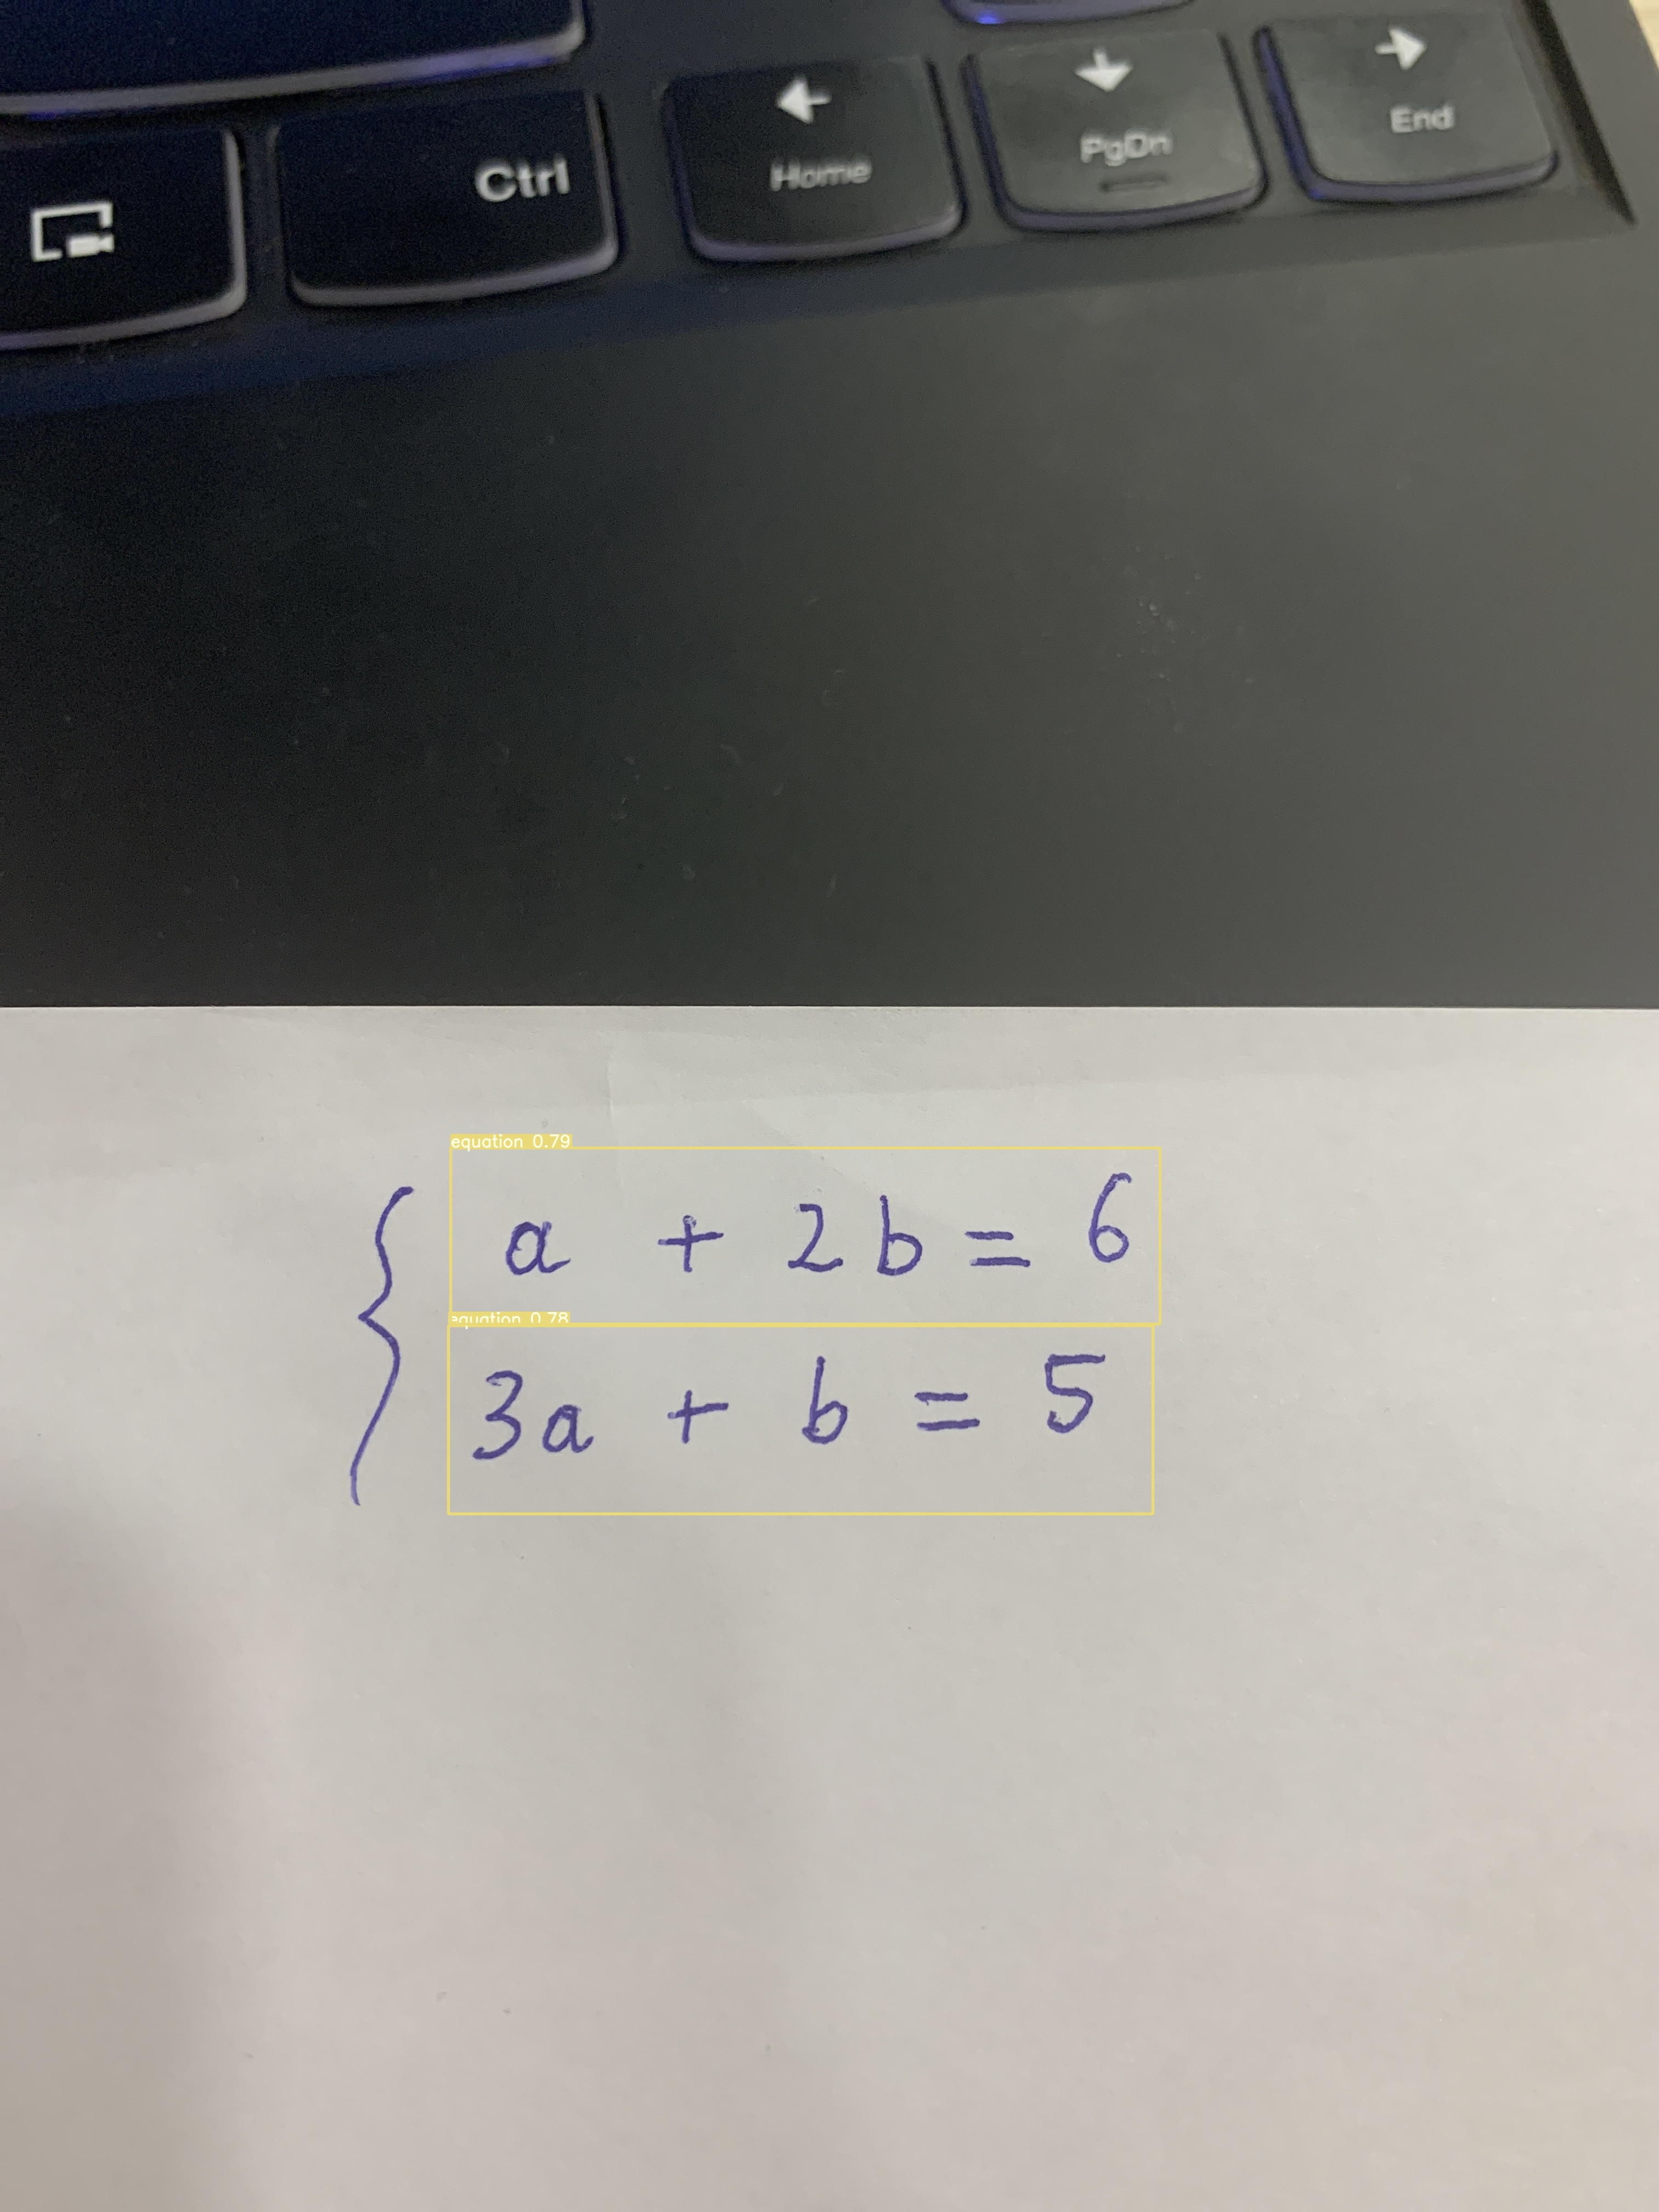 Ctrl
Home
PgDn
End
equation 0.79
a + 2b = 6
equation 0.78
3a + b = 5